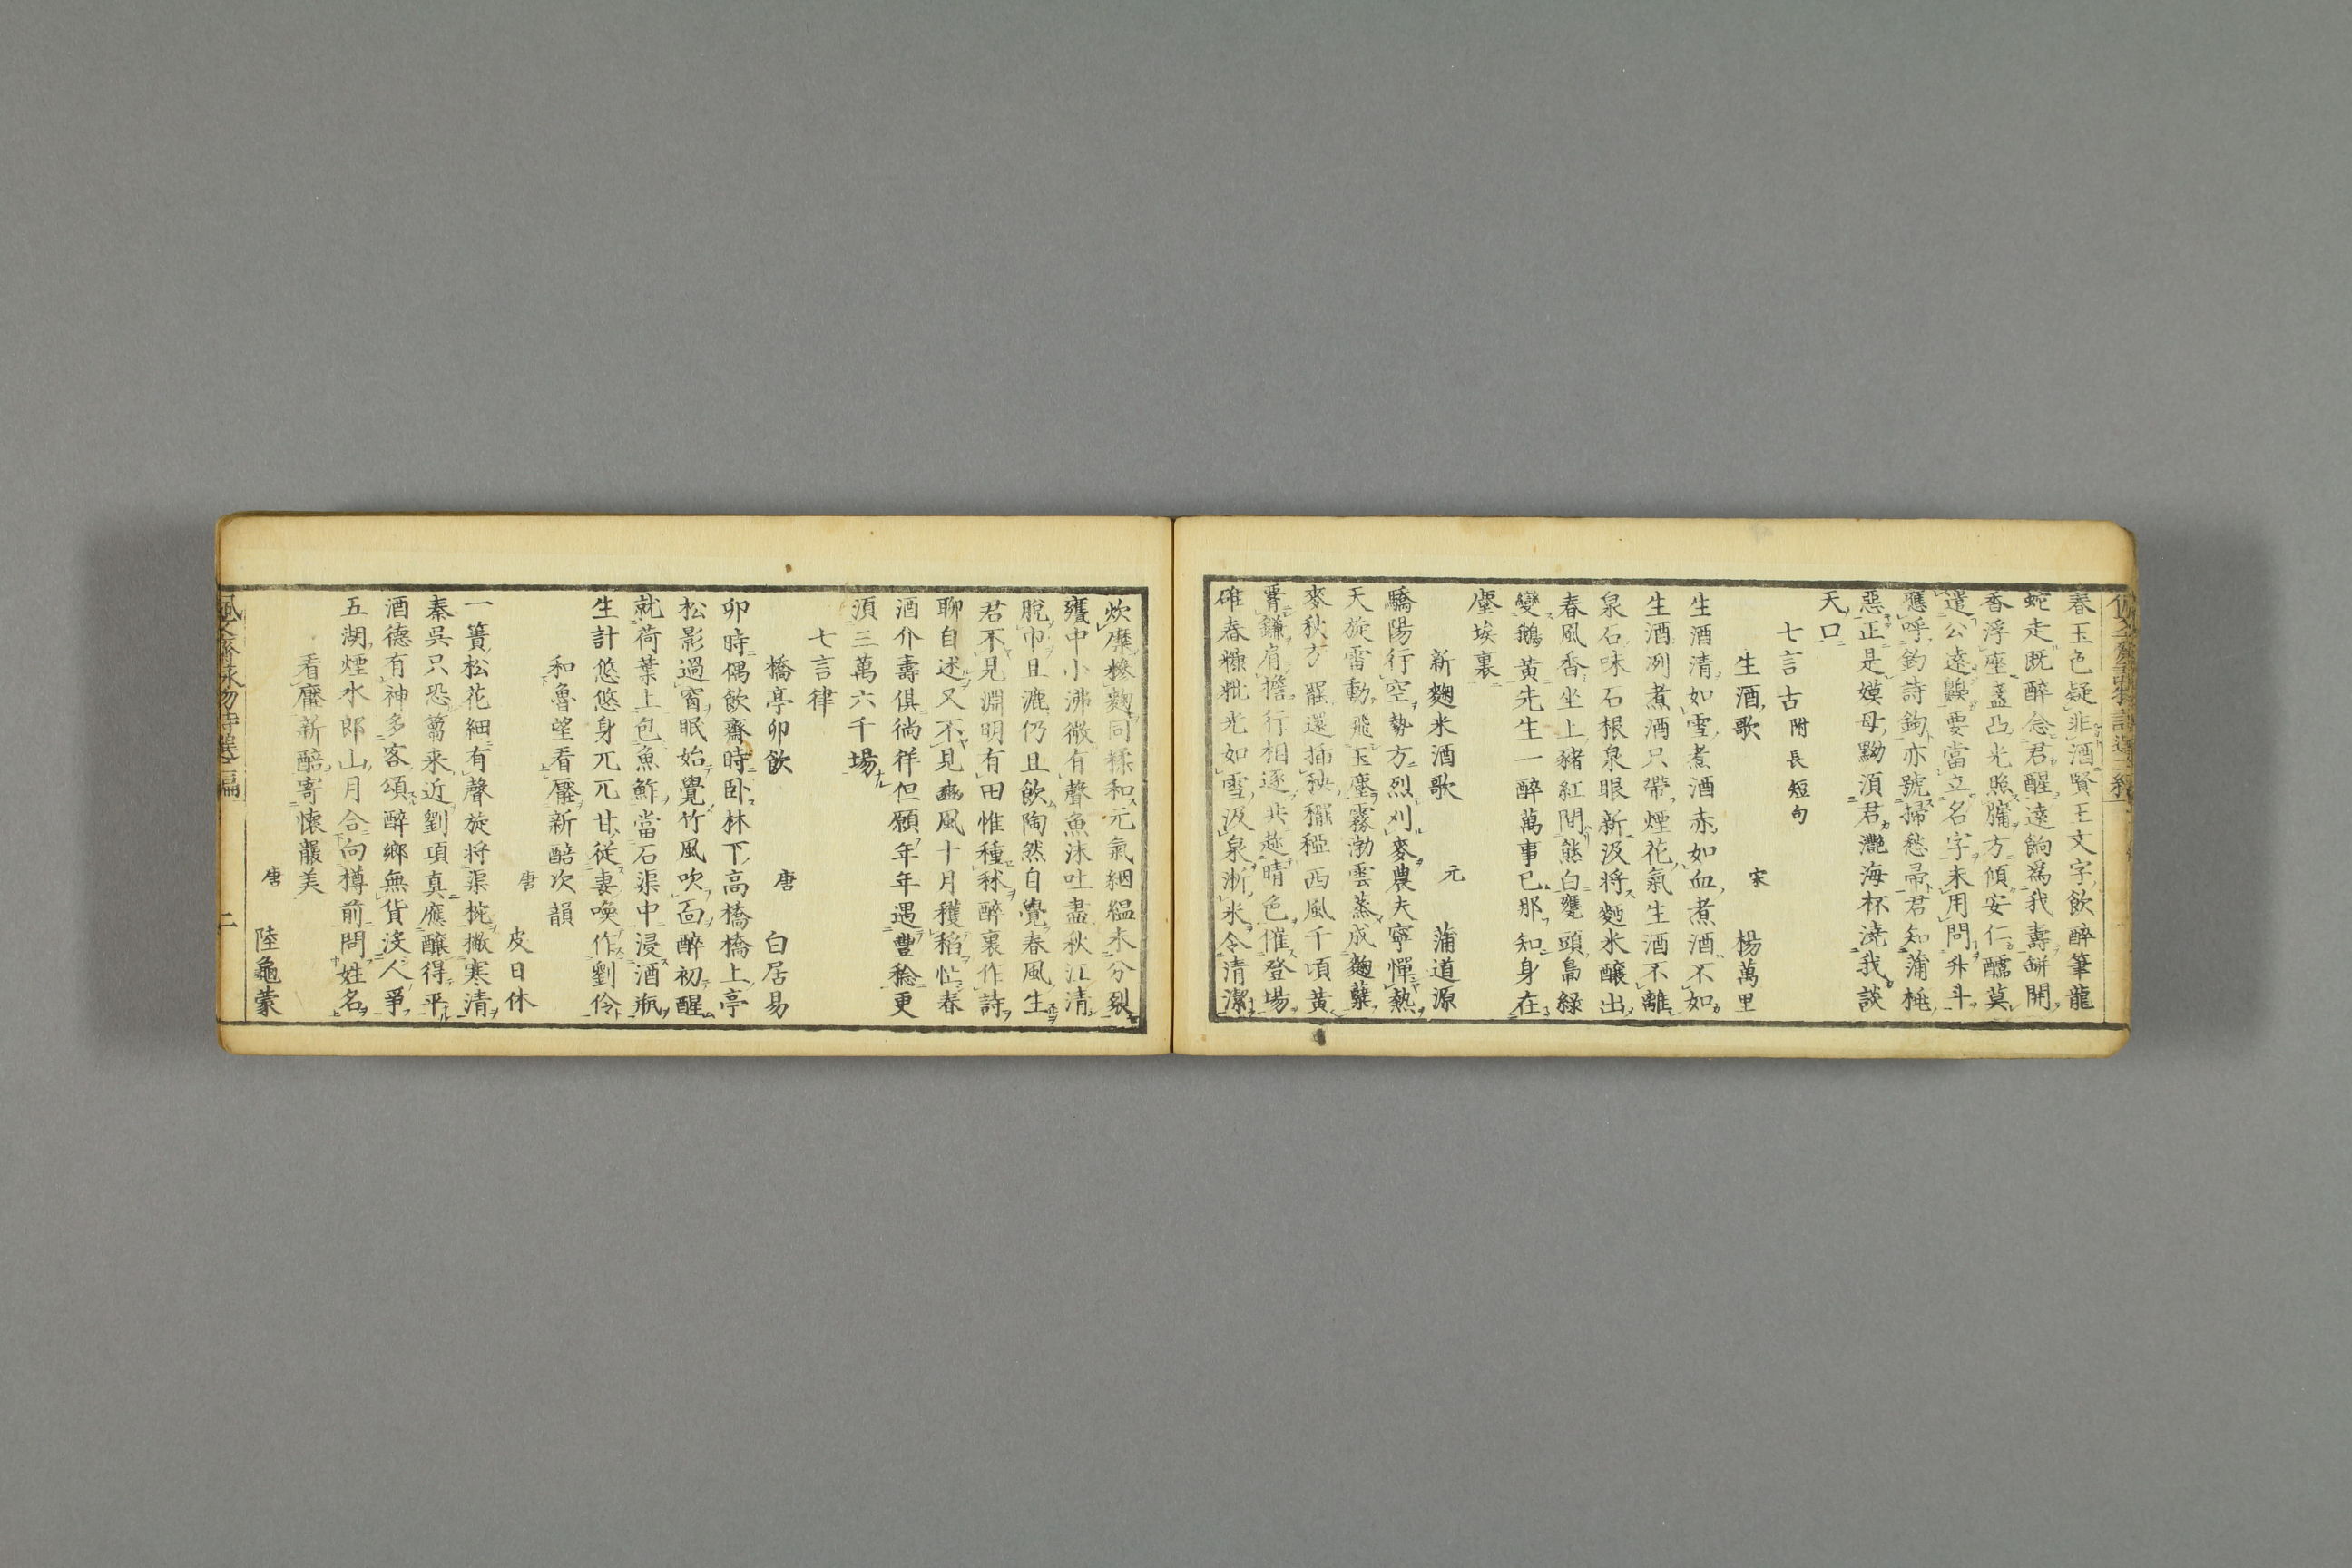 春玉色疑非酒賢王文字飲醉筆龍
蛇走既醉念君醒遠餉爲我壽缾開
香浮座盞凸光照牖方傾安仁醽莫
遣公遠齅要當立名字未用問升斗
應呼釣詩鉤亦號掃愁帚君知蒲桃
惡正是嫫母黝須君灔海杯澆我談
天口
七言古附長短句
生酒歌 宋 楊萬里
生酒清如雪煮酒赤如血煮酒不如
生酒冽煮酒只帶煙花氣生酒不離
泉石味石根泉眼新汲将麹米釀出
春風香坐上豬紅間熊白甕頭鳧緑
變鵝黃先生一醉萬事已那知身在
塵埃裏
新麴米酒歌 元 蒲道源
驕陽行空勢方烈刈麥農夫寧憚熱
天旋雷動飛玉塵霧渤雲蒸成麴糵
麥秋方罷還插秧䆉稏西風千頃黃
腰鎌肩擔行相逐共趁晴色催登場
碓舂糠粃光如雪汲泉淅米令清潔
炊糜糝麴同揉和元氣絪縕未分裂
甕中小沸微有聲魚沫吐盡秋江清
脫巾且漉仍且飲陶然自覺春風生
君不見淵明有田惟種秫醉裏作詩
聊自述又不見豳風十月穫稻忙春
酒介壽俱徜徉但願年年遇豐稔更
須三萬六千場
七言律
橋亭卯飲 唐 白居易
卯時偶飲齋時卧林下高橋橋上亭
松影過窗眠始覺竹風吹面醉初醒
就荷葉上包魚鮓當石渠中浸酒瓶
生計悠悠身兀兀甘從妻喚作劉伶
和魯望看壓新醅次韻
唐 皮日休
一簀松花細有聲旋将渠椀撇寒清
秦吳只恐篘来近劉項真應釀得平
酒德有神多客頌醉鄉無貨沒人爭
五湖煙水郎山月合向樽前問姓名
看壓新醅寄懷襲美
唐 陸龜蒙
二